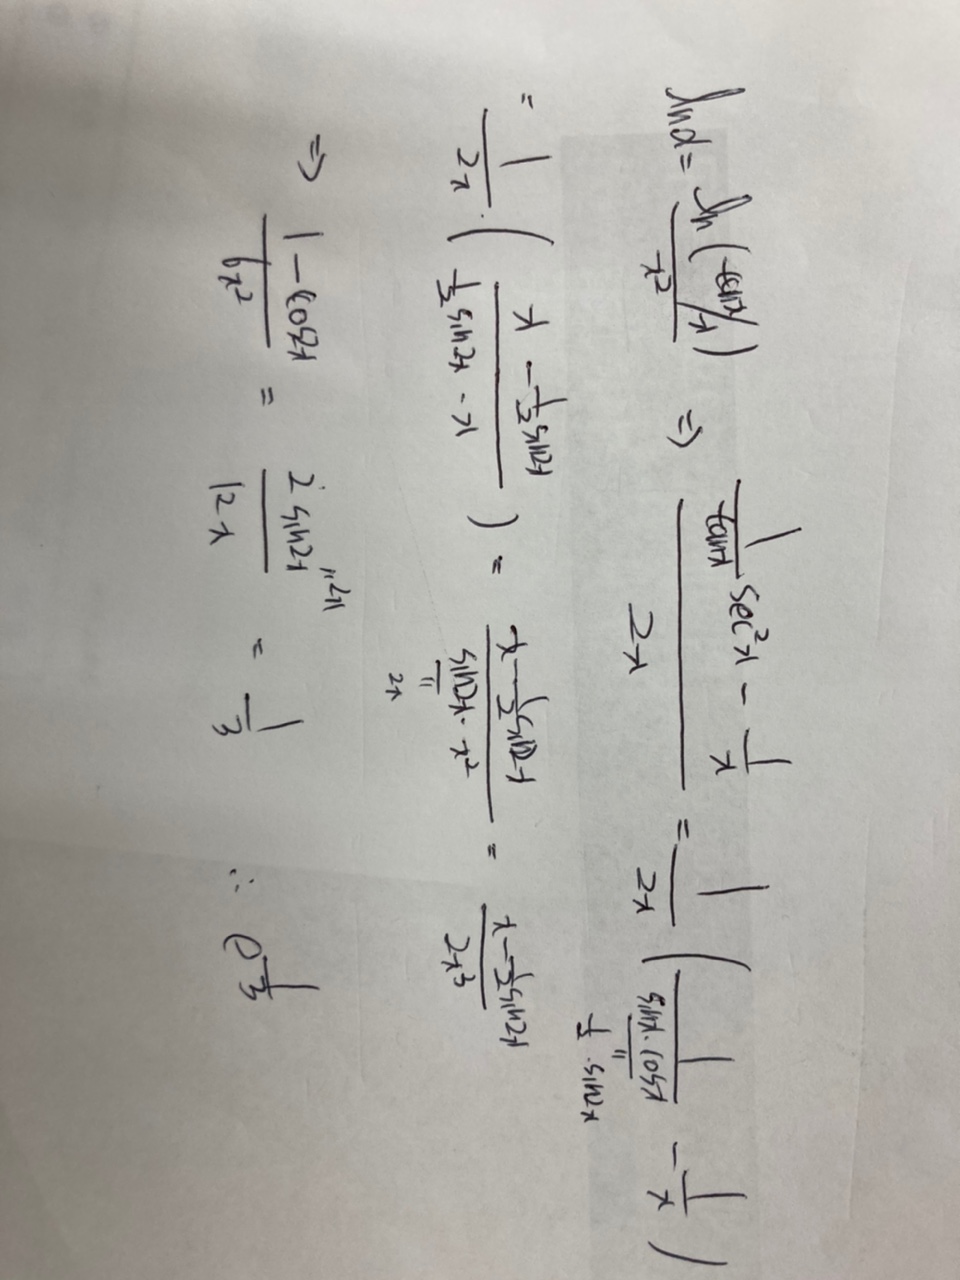 lnd = ln(tanx/x) / x² ⇒ (1/tanx sec²x - 1/x) / 2x = 1/2x ( 1 / (sinx·cosx) - 1/x )
" 1/2 · sin2x
= 1/2x · ( (x - 1/2 sin2x) / (1/2 sin2x · x) ) = (x - 1/2 sin2x) / (sin2x · x²) = (x - 1/2 sin2x) / 2x³
" 2x
⇒ (1 - cos2x) / 6x² = 2 sin2x / 12x = 1/3 ∴ e^(1/3)
" 2x